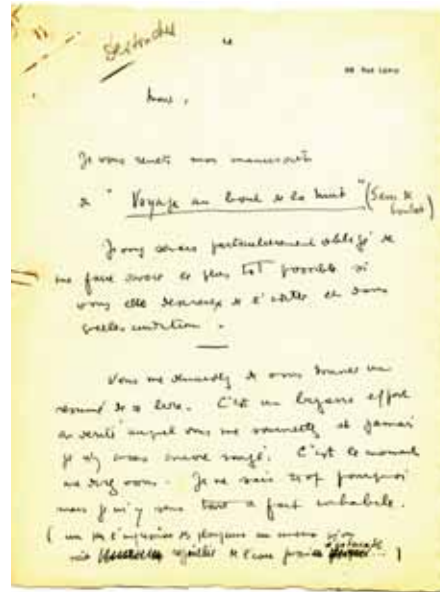 Destouches
98 rue Lepic
Je vous remets mon manuscrit
"Voyage au bout de la Nuit" (5 ans de boulot)
Je vous serais particulièrement obligé de
me faire savoir le plus tôt possible si
vous êtes désireux de l'éditer et dans
quelles conditions.
Vous me demandez de vous donner un
résumé de ce livre. C'est un bizarre effort
en vérité auquel vous me soumettez et jamais
je n'y avais encore songé. C'est le moment
me direz-vous. Je ne sais trop pourquoi
mais je m'y sens tout à fait inhabile.